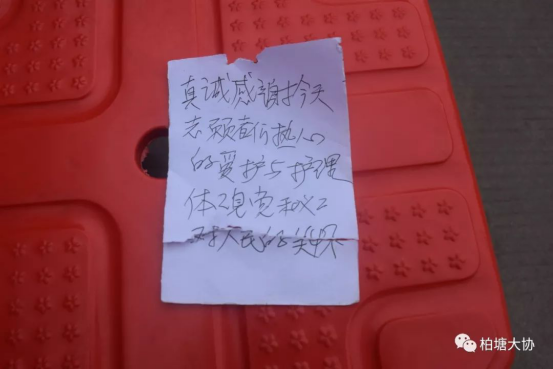 真诚感谢扵今天
志愿者们热心
的爱护与护理
体现党和
对人民的关怀
柏塘大协